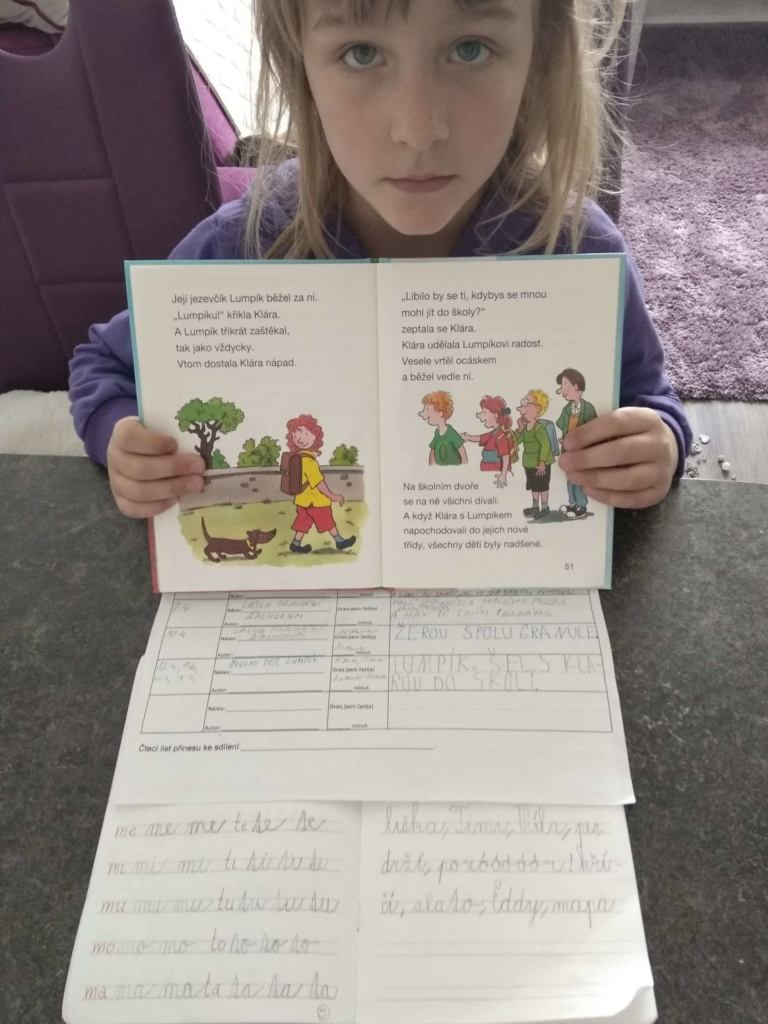 Její jezevčík Lumpík běžel za ní.
„Lumpíku!“ křikla Klára.
A Lumpík třikrát zaštěkal,
tak jako vždycky.
Vtom dostala Klára nápad.
„Líbilo by se ti, kdybys se mnou
mohl jít do školy?“
zeptala se Klára.
Klára udělala Lumpíkovi radost.
Vesele vrtěl ocáskem
a běžel vedle ní.
Na školním dvoře
se na ně všichni dívali.
A když Klára s Lumpíkem
napochodovali do jejich nové
třídy, všechny děti byly nadšené.
51
Autor: minut.
Název: Dnes jsem četl(a)
Autor: minut.
ŽEROU SPOLU GRANULE
Název: ŠKOLNÍ PES LUMPÍK Dnes jsem četl(a)
Autor: minut.
LUMPÍK ŠEL S KLÁ-
ROU DO ŠKOLY.
Název: Dnes jsem četl(a)
Autor: minut.
Čtecí list přinesu ke sdílení
me me me te te te
mi mi mi ti ti ti ti
mu mu mu tu tu tu tu
mo mo mo to to to to
ma ma ma ta ta ta ta
liška, Timi, Míla,
drží,
Eddy, mapa